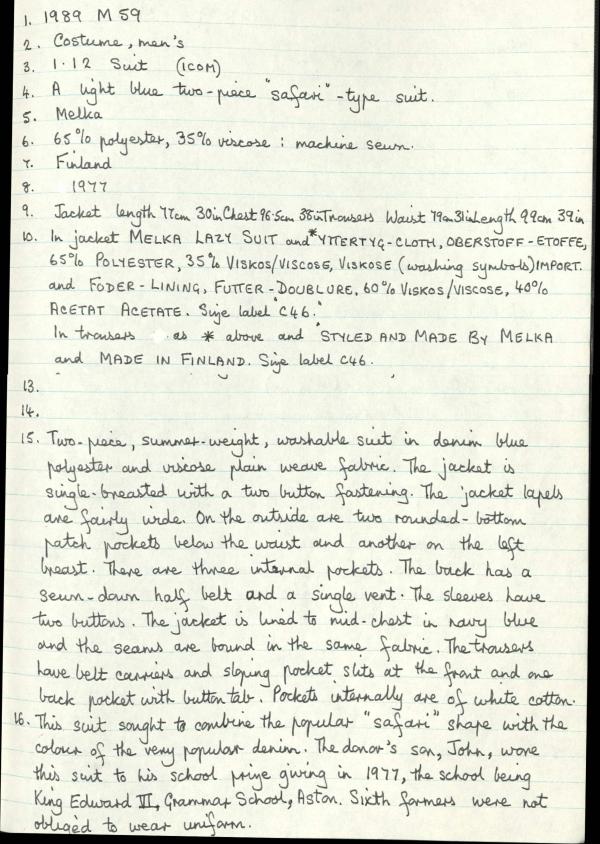 1. 1989 M 59
2. Costume, men's
3. 1.12 Suit (ICOM)
4. A light blue two-piece "safari"-type suit.
5. Melka
6. 65% polyester, 35% viscose : machine sewn.
7. Finland
8. 1977
9. Jacket length 77cm 30in Chest 96.5cm 38in Trousers Waist 79cm 31in Length 99cm 39in
10. In jacket MELKA LAZY SUIT and *YTTERTYG-CLOTH, OBERSTOFF-ETOFFE,
65% POLYESTER, 35% VISKOS/VISCOSE, VISKOSE (washing symbols) IMPORT.
and FODER-LINING, FUTTER-DOUBLURE, 60% VISKOS/VISCOSE, 40%
ACETAT ACETATE. Size label "C46."
In trousers as * above and "STYLED AND MADE BY MELKA
and MADE IN FINLAND. Size label C46.
13.
14.
15. Two-piece, summer-weight, washable suit in denim blue
polyester and viscose plain weave fabric. The jacket is
single-breasted with a two button fastening. The jacket lapels
are fairly wide. On the outside are two rounded-bottom
patch pockets below the waist and another on the left
breast. There are three internal pockets. The back has a
sewn-down half belt and a single vent. The sleeves have
two buttons. The jacket is lined to mid-chest in navy blue
and the seams are bound in the same fabric. The trousers
have belt carriers and sloping pocket slits at the front and one
back pocket with button tab. Pockets internally are of white cotton.
16. This suit sought to combine the popular "safari" shape with the
colour of the very popular denim. The donor's son, John, wore
this suit to his school prize giving in 1977, the school being
King Edward VI, Grammar School, Aston. Sixth formers were not
obliged to wear uniform.